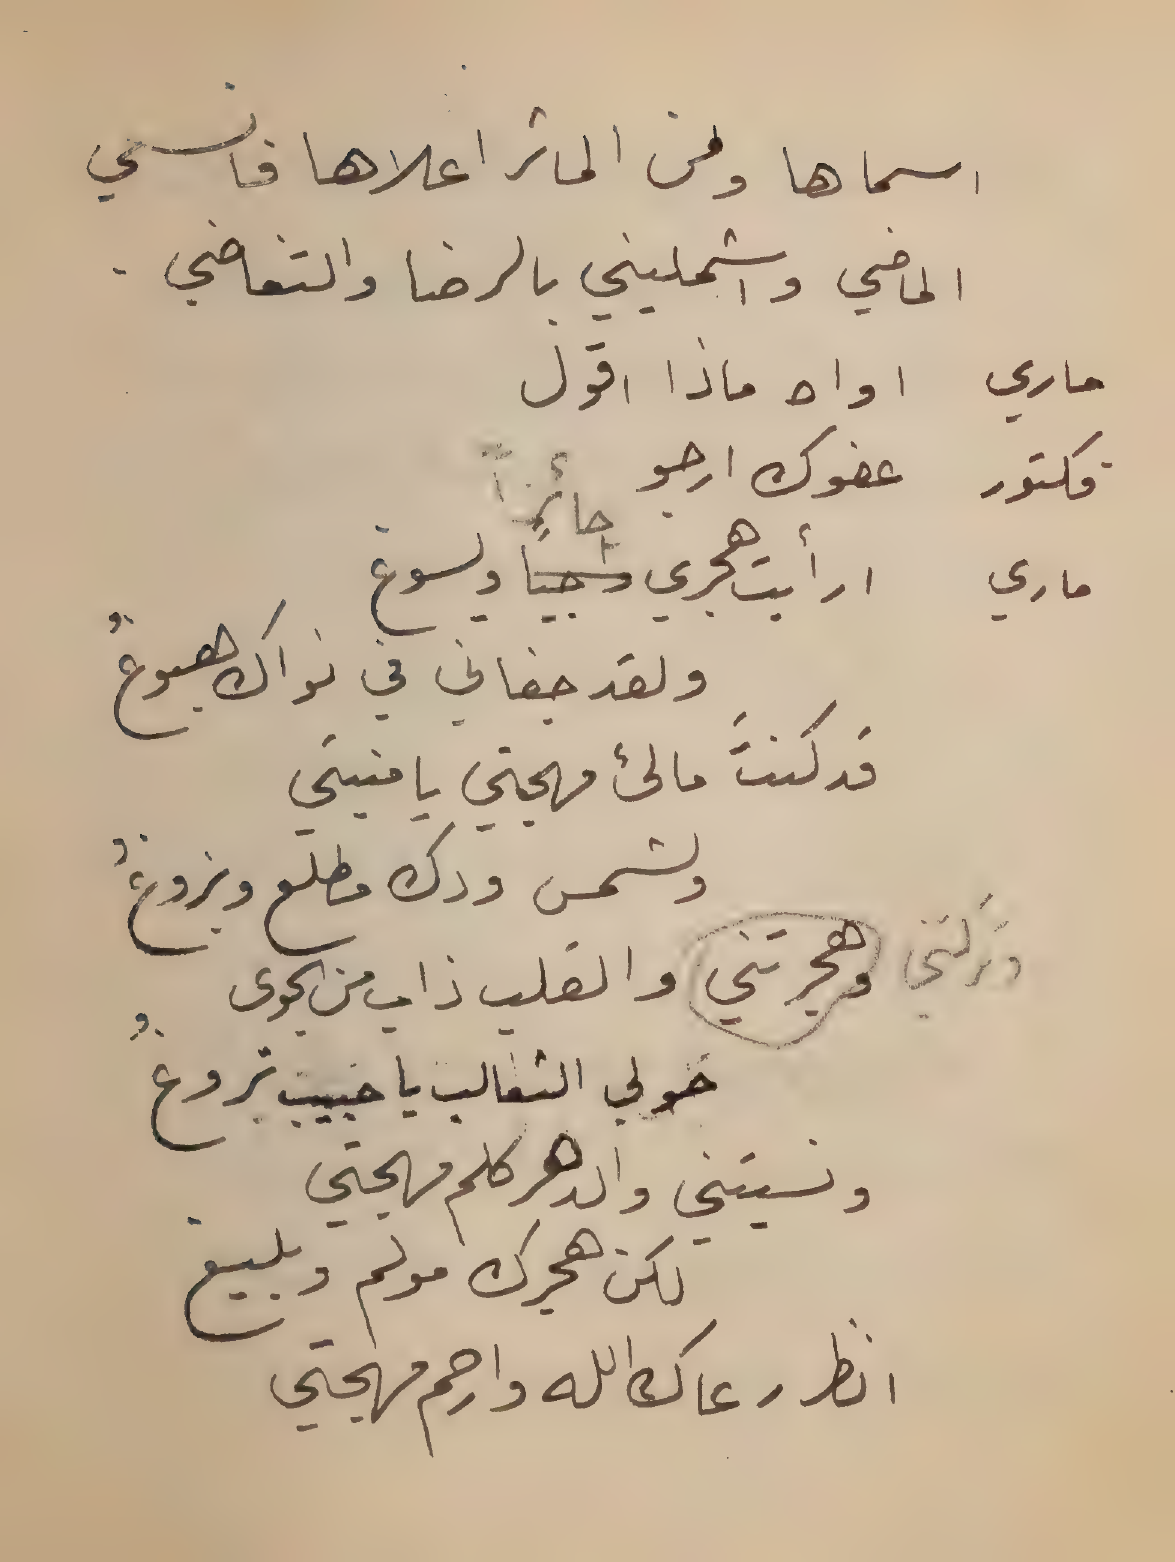 اسماها ومن المآثر اعلاها فانسي
الماضي واشمليني بالرضا والتغاضي .
ماري اواه ماذا اقول
فكتور عفوك ارجو
جائزاً
ماري ارأيت هجري واجباً ويسوغ
ولقد جفاني في نواك هبوغُ
قد كنتَ مالئ مهجتي يا منيتي
ولشمس ودك مطلع وبزوغُ
وتركتني وهجرتني والقلب ذاب من الجوى
حولي الثعالب يا حبيب تروغُ
ونسيتني والدهر كلم مهجتي
لكن هجرك مولم وبليغ
انظر رعاك الله وارحم مهجتي